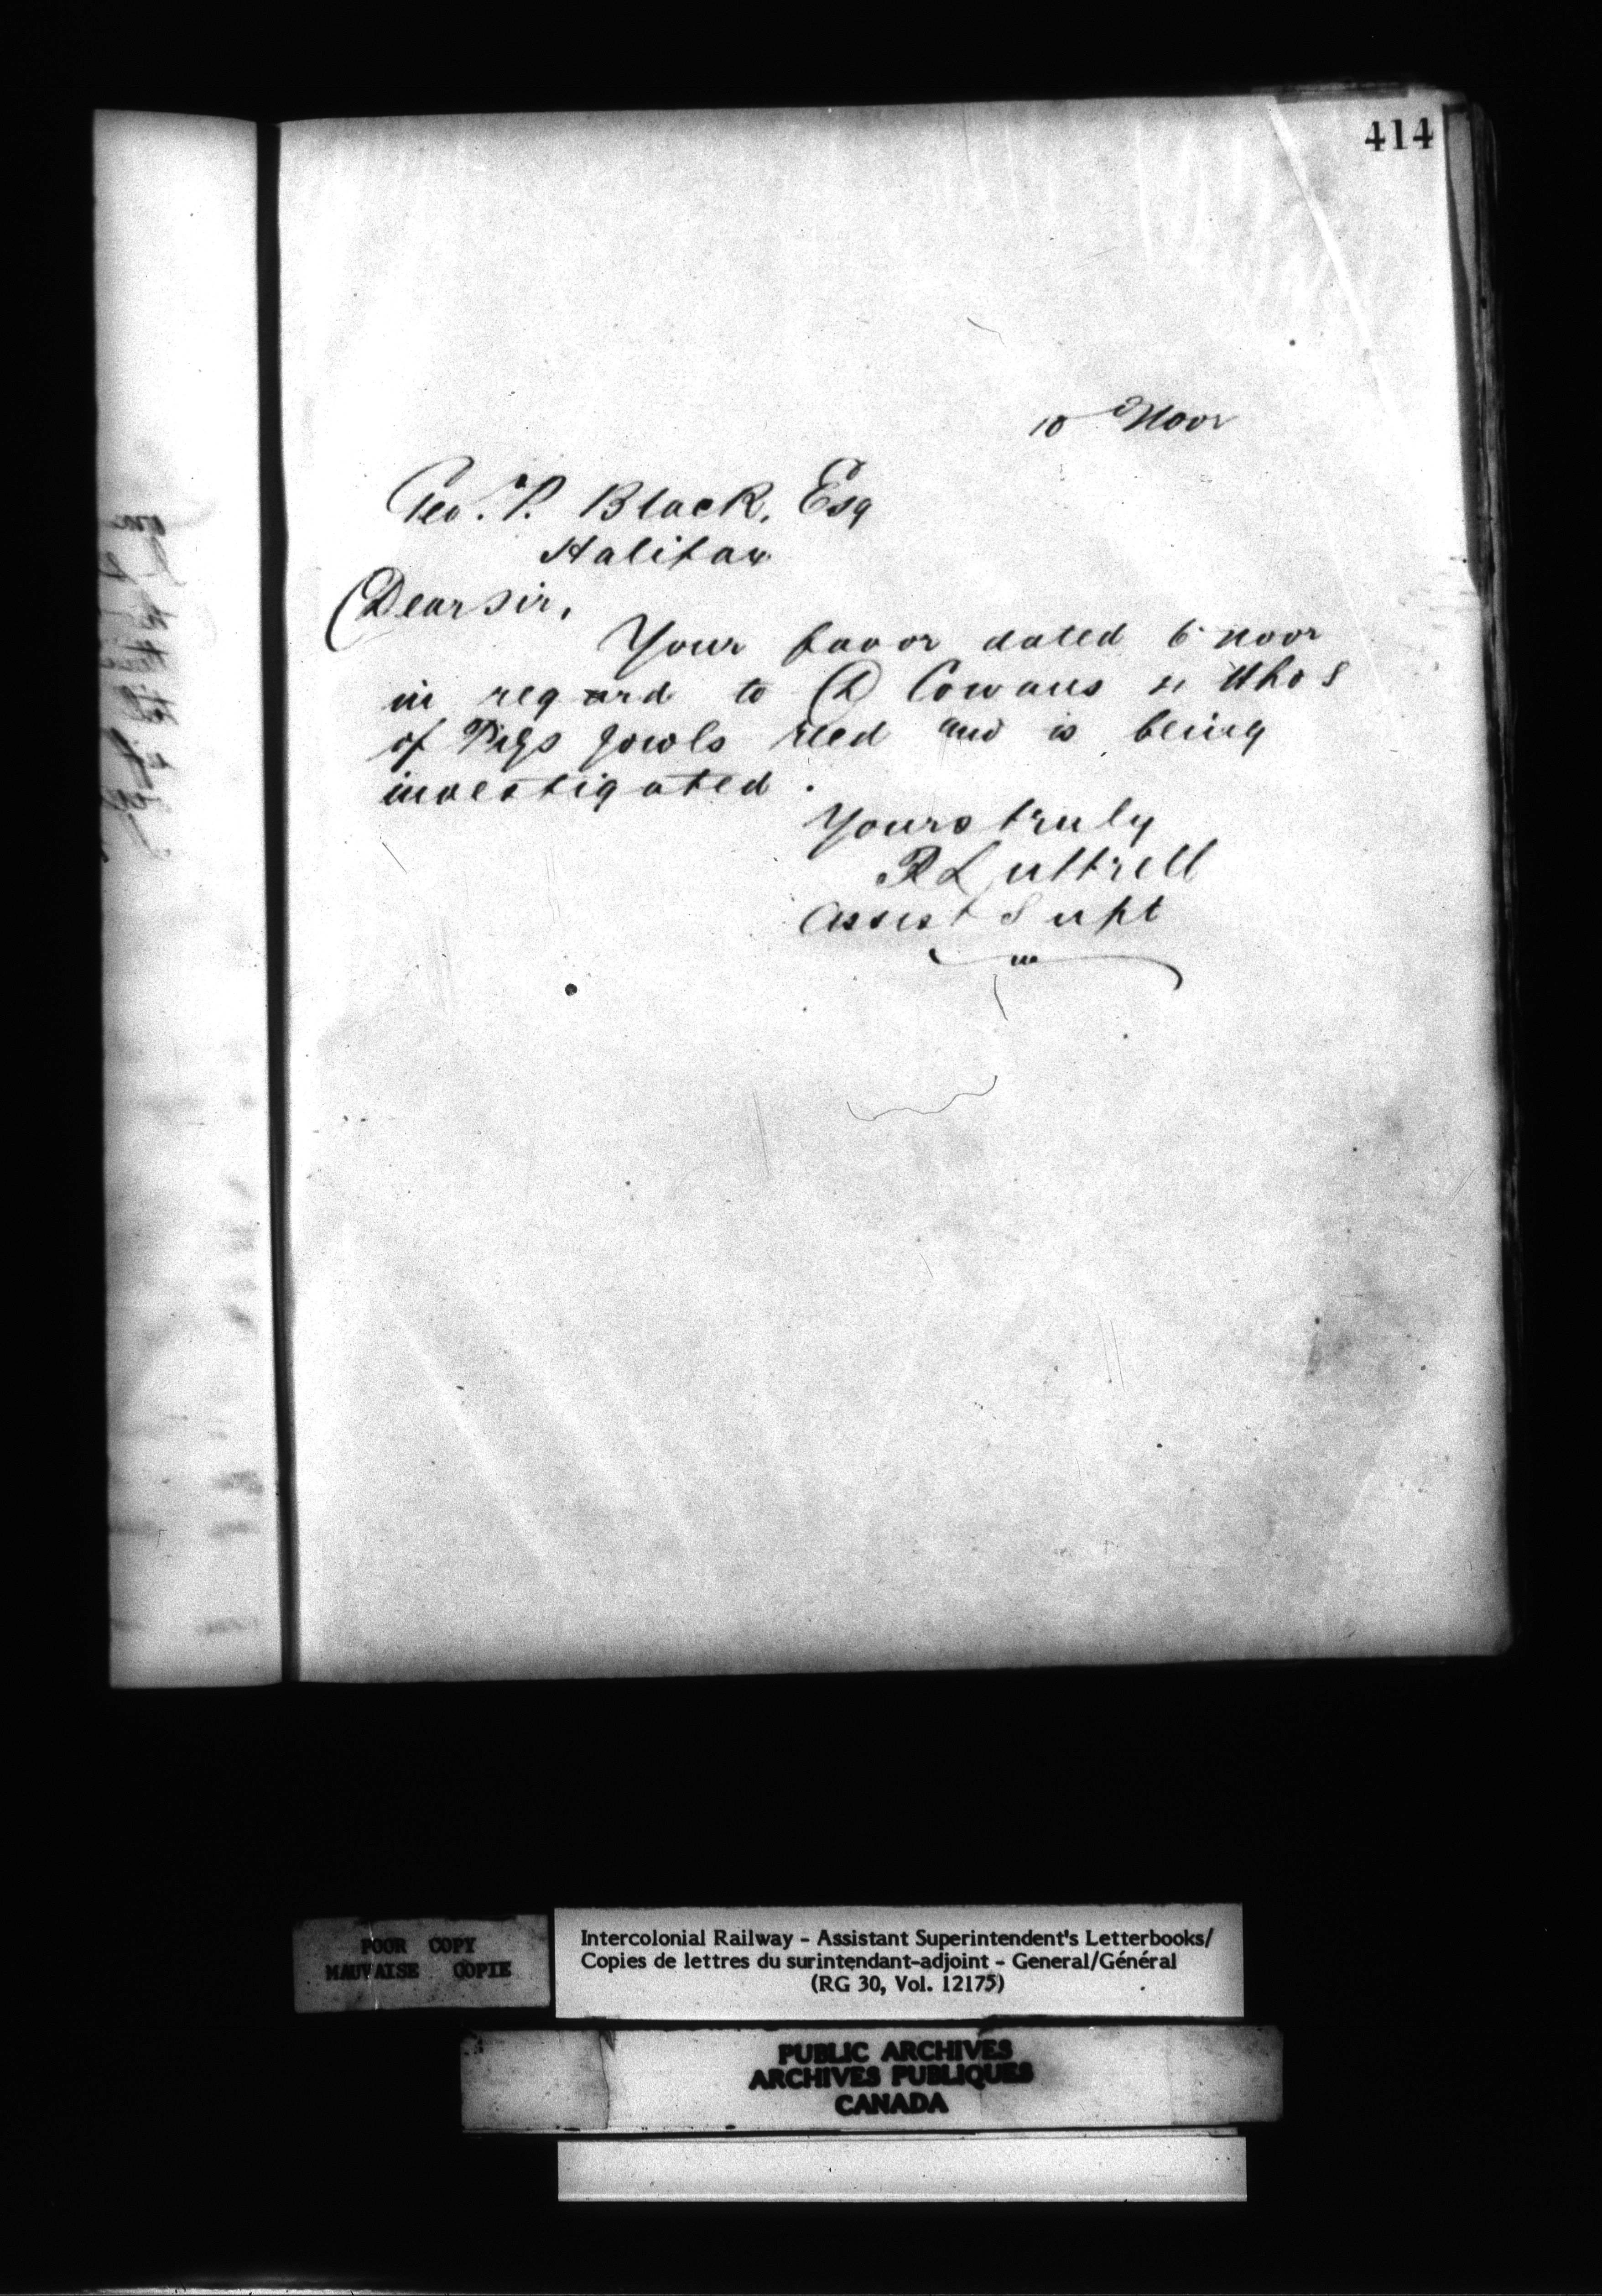 414
10 Novr
Geo. P. Black, Esq
Halifax
Dear Sir,
Your favor dated 6 Novr
in regard to D Cowans
of Pigs Jowls recd and is being
investigated.
Yours truly
R Luttrell
Assist Supt
POOR COPY
MAUVAISE COPIE
Intercolonial Railway - Assistant Superintendent's Letterbooks/
Copies de lettres du surintendant-adjoint - General/Général
(RG 30, Vol. 12175)
PUBLIC ARCHIVES
ARCHIVES PUBLIQUES
CANADA